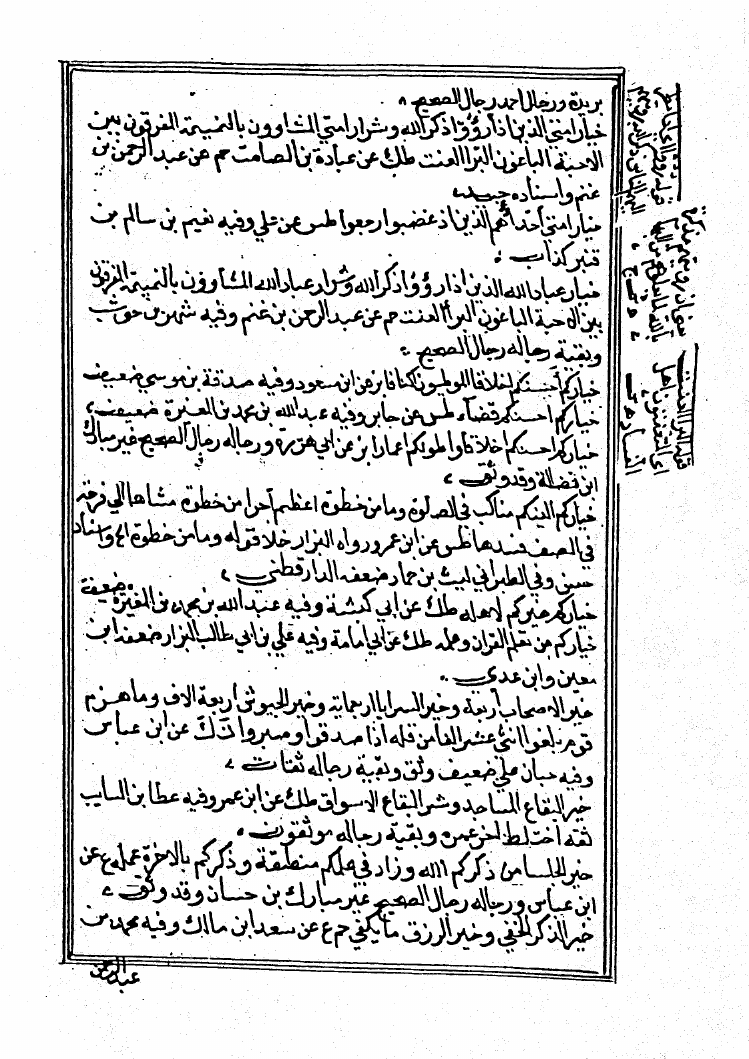 بريدة ورجال احمد رجال الصحيح
خيار امتي الذين اذا رؤوا ذكر الله وشرار امتي المشاوون بالنميمة المفرقون بين
الاحبة الباغون البرا العنت طك عن عبادة بن الصامت حم عن عبد الرحمن بن
غنم واسناده جيد
خيار امتي احداهم الذين اذ غضبوا رجعوا طس عن علي وفيه نعيم بن سالم بن
قنبر كذاب
خيار عباد الله الذين اذا رؤوا ذكر الله وشرار عباد الله المشاؤون بالنميمة المفرقون
بين الاحبة الباغون البرأ العنت حم عن عبد الرحمن بن غنم وفيه شهر بن حوشب
وبقية رجاله رجال الصحيح
خياركم احسنكم اخلاقا الموطؤن اكنافا بز عن ابن مسعود وفيه صدقة بن موسي ضعيف
خياركم احسنكم قضاء طس عن جابر وفيه عبد الله بن محمد بن المغيرة ضعيف
خياركم احسنكم اخلاقا واطولكم اعمارا بز عن ابي هريرة ورجاله رجال الصحيح غير مبارك
ابن فضالة وقد وثق
خياركم الينكم مناكب في الصلوة وما من خطوة اعظم أجرا من خطوة مشاها الي فرجة
في الصف فسدها طس عن ابن عمر ورواه البزار خلا قوله وما من خطوة الخ واسناد
حسن وفي الطبراني ليث بن حماد ضعفه الدارقطني
خياركم خيركم لاهله طك عن ابي كبشة وفيه عبد الله بن محمد بن المغيرة ضعيف
خياركم من تعلم القران وعلمه طك عن ابي امامة وفيه علي بن ابي طالب البزار ضعفه ابن
معين وابن عدي
خير الاصحاب أربعة وخير السرايا اربعماية وخير الجيوش اربعة الاف وما هزم
قوم بلغوا اثني عشر الفا من قله اذا صدقوا وصبروا عن ابن عباس
وفيه حبان علي ضعيف وثق وبقية رجاله ثقات
خير البقاع المساجد وشر البقاع الاسواق طك عن ابن عمر وفيه عطا بن السايب
ثقه اختلط اخر عمره وبقية رجاله موثقون
خير الجلسا من ذكركم الله وزاد في علمكم منطقة وذكركم بالاخرة عمله ع عن
ابن عباس ورجاله رجال الصحيح غير مبارك بن حسان وقد وثق
خير الذكر الخفي وخير الرزق ما يكفي حم ع عن سعد ابن مالك وفيه محمد بن
عبد الرحمن